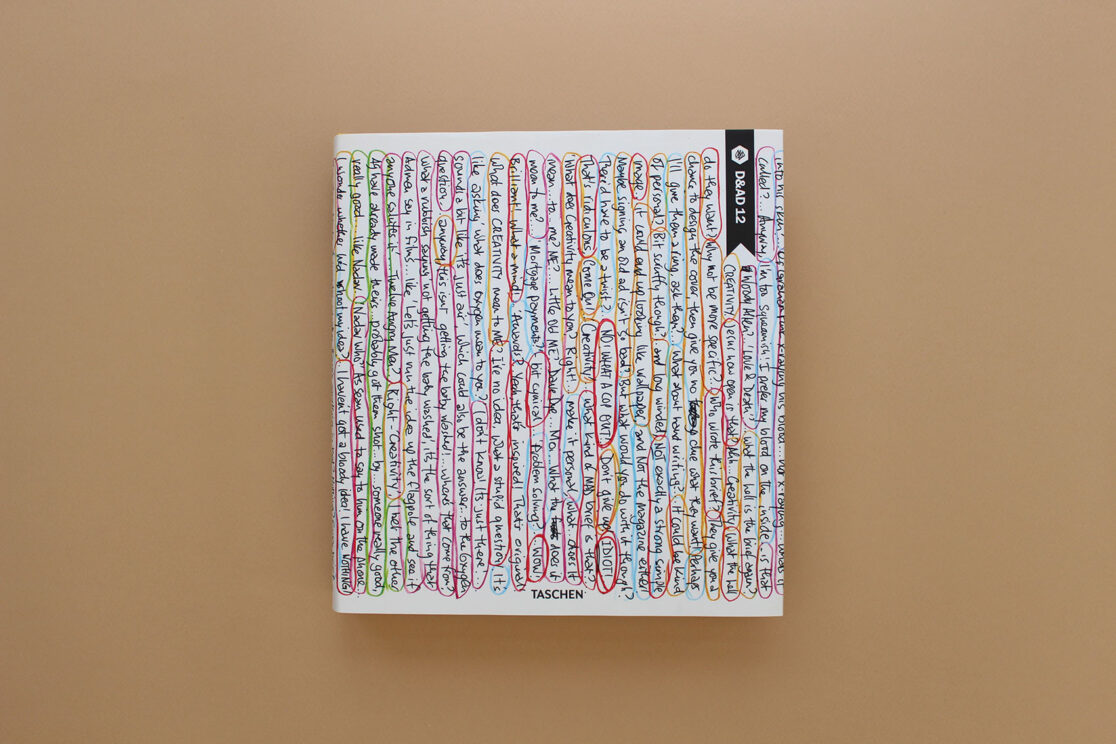 D&AD 12
into his pen
called?... Anyway I'm too squeamish! I prefer my blood on the inside. is that
Woody Allen? 'Love & Death'? what the hell is the brief again?
CREATIVITY. Jesus how open is that? Mm... Creativity what the hell
do they want? Why not be more specific? Who wrote this brief? They give you a
chance to design the cover then give you no clue what they want! Perhaps
I'll give them a ring, ask them?... What about hand writing?. it could be kind
of personal? Bit scruffy though? and long winded Not exactly a strong simple
image? it could end up looking like wallpaper and Not the magazine either!
Maybe signing an old ad isn't so bad? But what would you do with it though?
There'd have to be a twist? NO, WHAT A COP OUT! Don't give up, IDIOT!
That's ridiculous Come On! Creativity! what kind of MAD brief is that?
What does Creativity mean to you? Right! make it personal, what does it
mean... to... me? ME?... Little old ME? Dave Dye... Mm... What the does it
mean to me?... Mortgage payments? bit cynical.. Problem solving?.. WOW!
Brilliant! what a mind! 'Awards'? Yeah that's inspired! That's original!
What does CREATIVITY mean to ME? I've no idea, what a stupid question, it's
like asking what does oxygen mean to you? I don't know! It's just there...
sounds a bit like 'it's just air', which could also be the answer... to the oxygen
question. anyway this isn't getting the baby washed!... where's that come from?
what a rubbish saying 'not getting the baby washed', it's the sort of thing that
Admen say in films... like 'Let's just run the idea up the flagpole and see if
anyone salutes it'. Twelve Angry Men? Right - Creativity I bet the other
AGs have already made theirs... probably got them shot... by... someone really good,
really good... like Nadav. 'Nadav who?' As Sean used to say to him on the phone.
I wonder whether he'd my idea? I haven't got a bloody idea! I have NOTHING!
TASCHEN